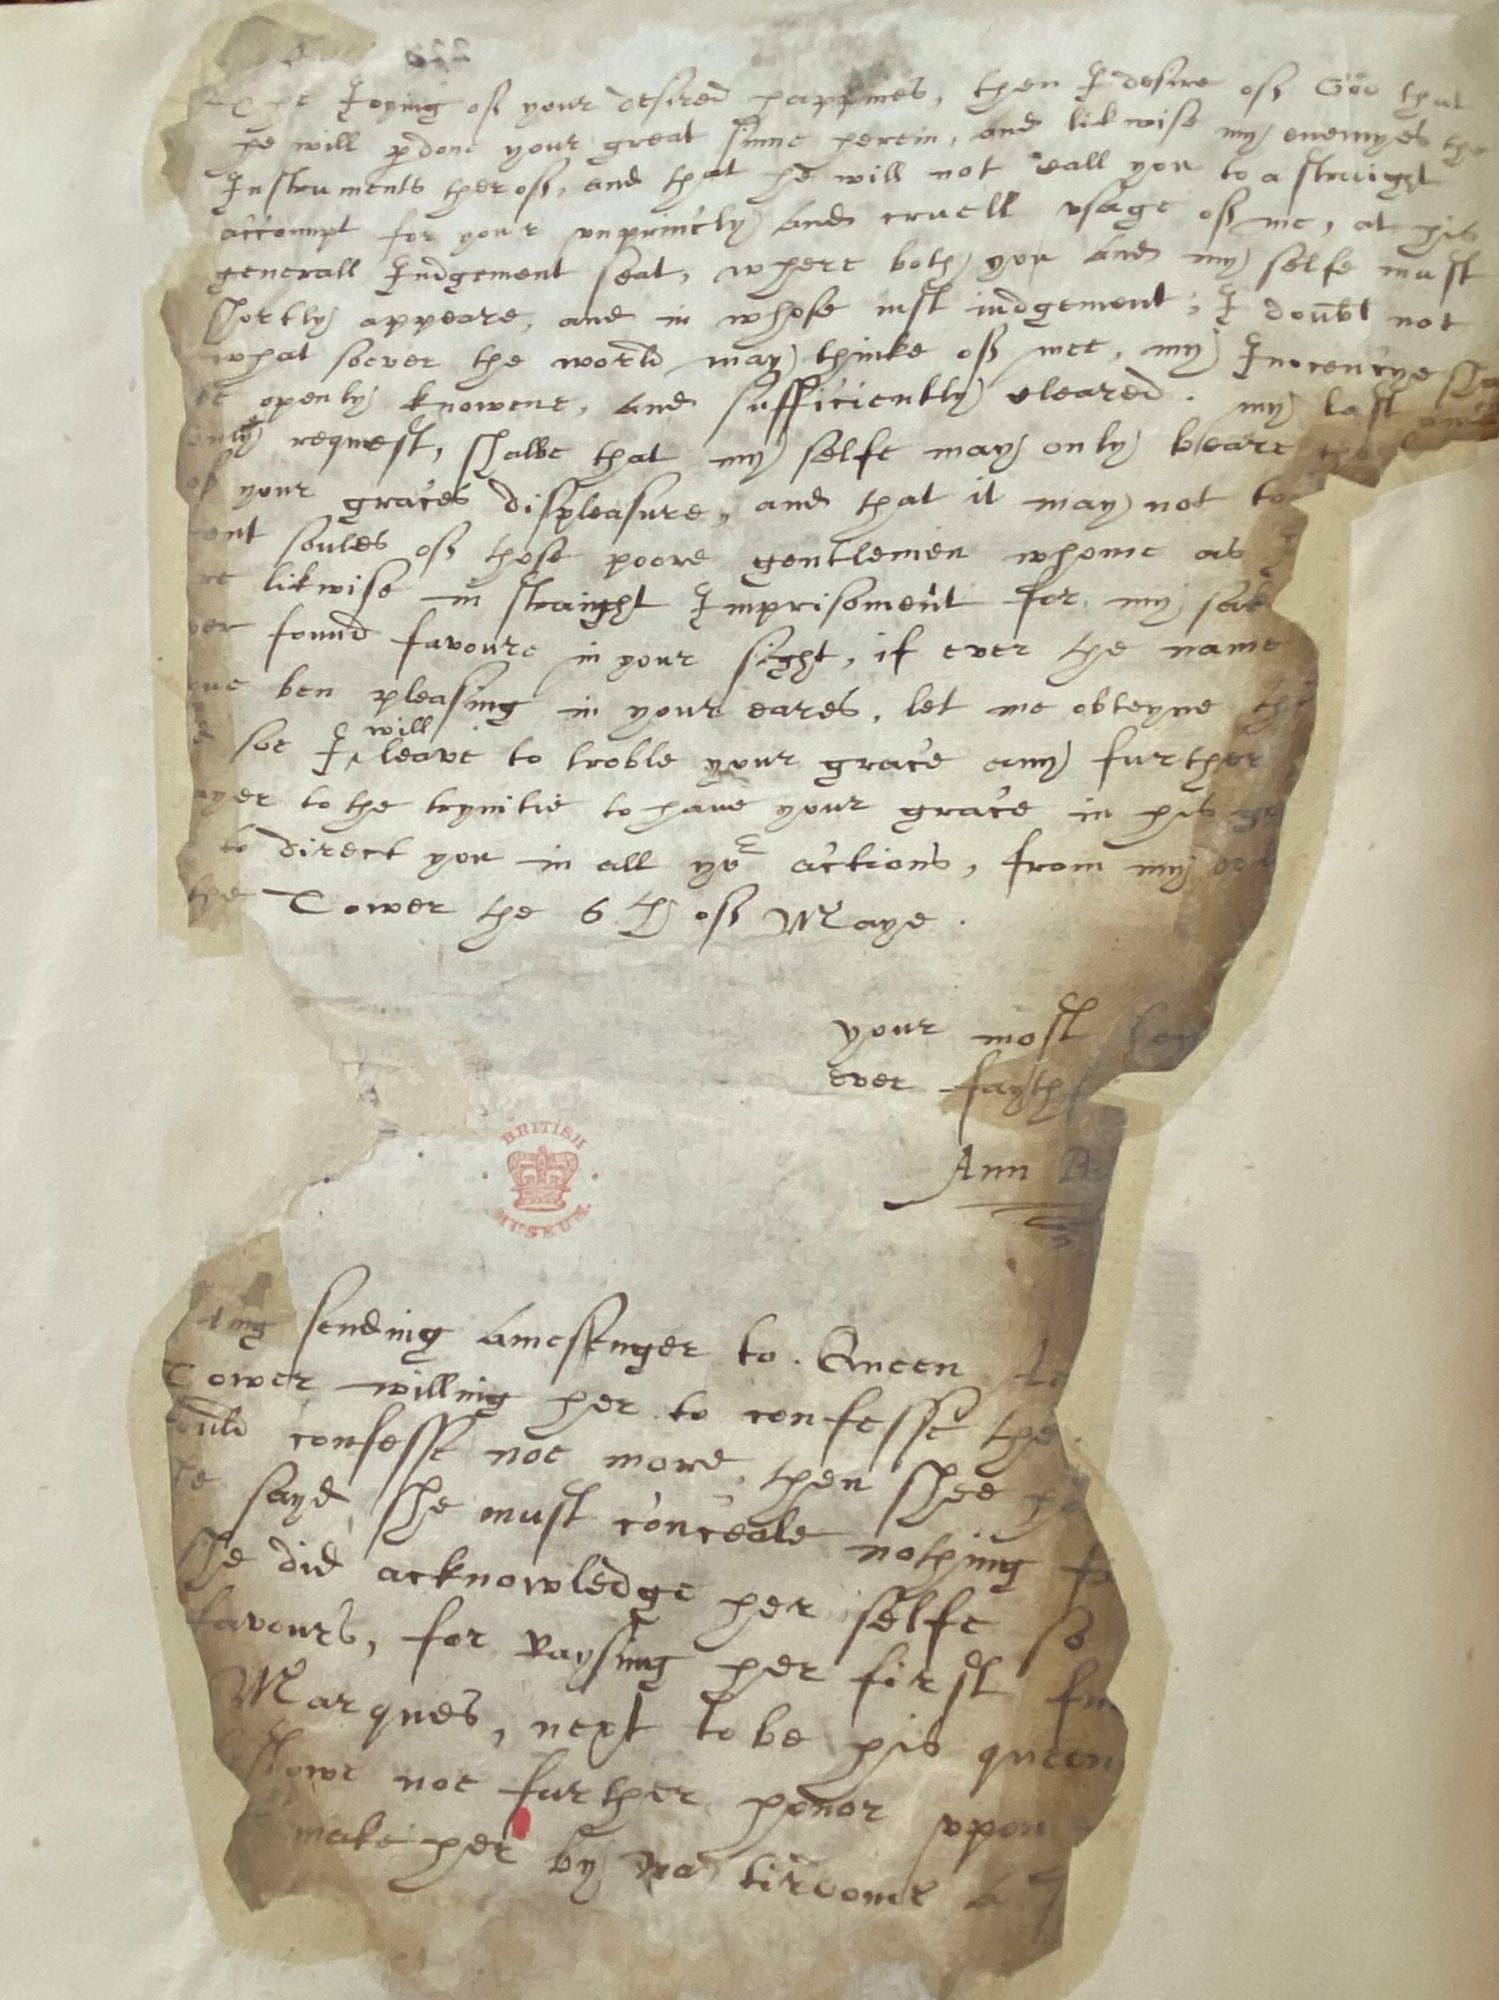 the Ioying off your desired happines, then I desire off God that
he will pdone your great sinne herein, and likwise my enemyes the
Instruments theroff, and that he will not call you to a straight
accompt for your unprincly and cruell usage off me, at his
generall Iudgement seat, where both you and my selfe must
shortly appeare, and in whose iust iudgement, I doubt not
what soever the world may thinke off mee, my Inocencye sha
be openly knowene, and sufficiently cleared. my last and
only request, shalbe that my selfe may only beare the
off your graces displeasure, and that it may not to
ent soules off those poore gentlemen whome as I
re likwise in straight Imprisoment for my sak
ver found favoure in your sight, if ever the name
ene ben pleasing in your eares, let me obteyne th
d soe I will leave to troble your grace any further
ayer to the trynitie to have your grace in his go
to direct you in all yor actions, from my do
the Tower the 6th off Maye.
your most loy
ever faythf
Ann Bo
ing sending a messenger to Queen
Tower willing her to confesse the
ould confesse noe more, then shee
he sayd she must conceale nothing
she did acknowledge her selfe so
favours, for raysing her first
Marques, next to be his queen
stowe noe further honor upon
make her by
BRITISH
MUSEUM